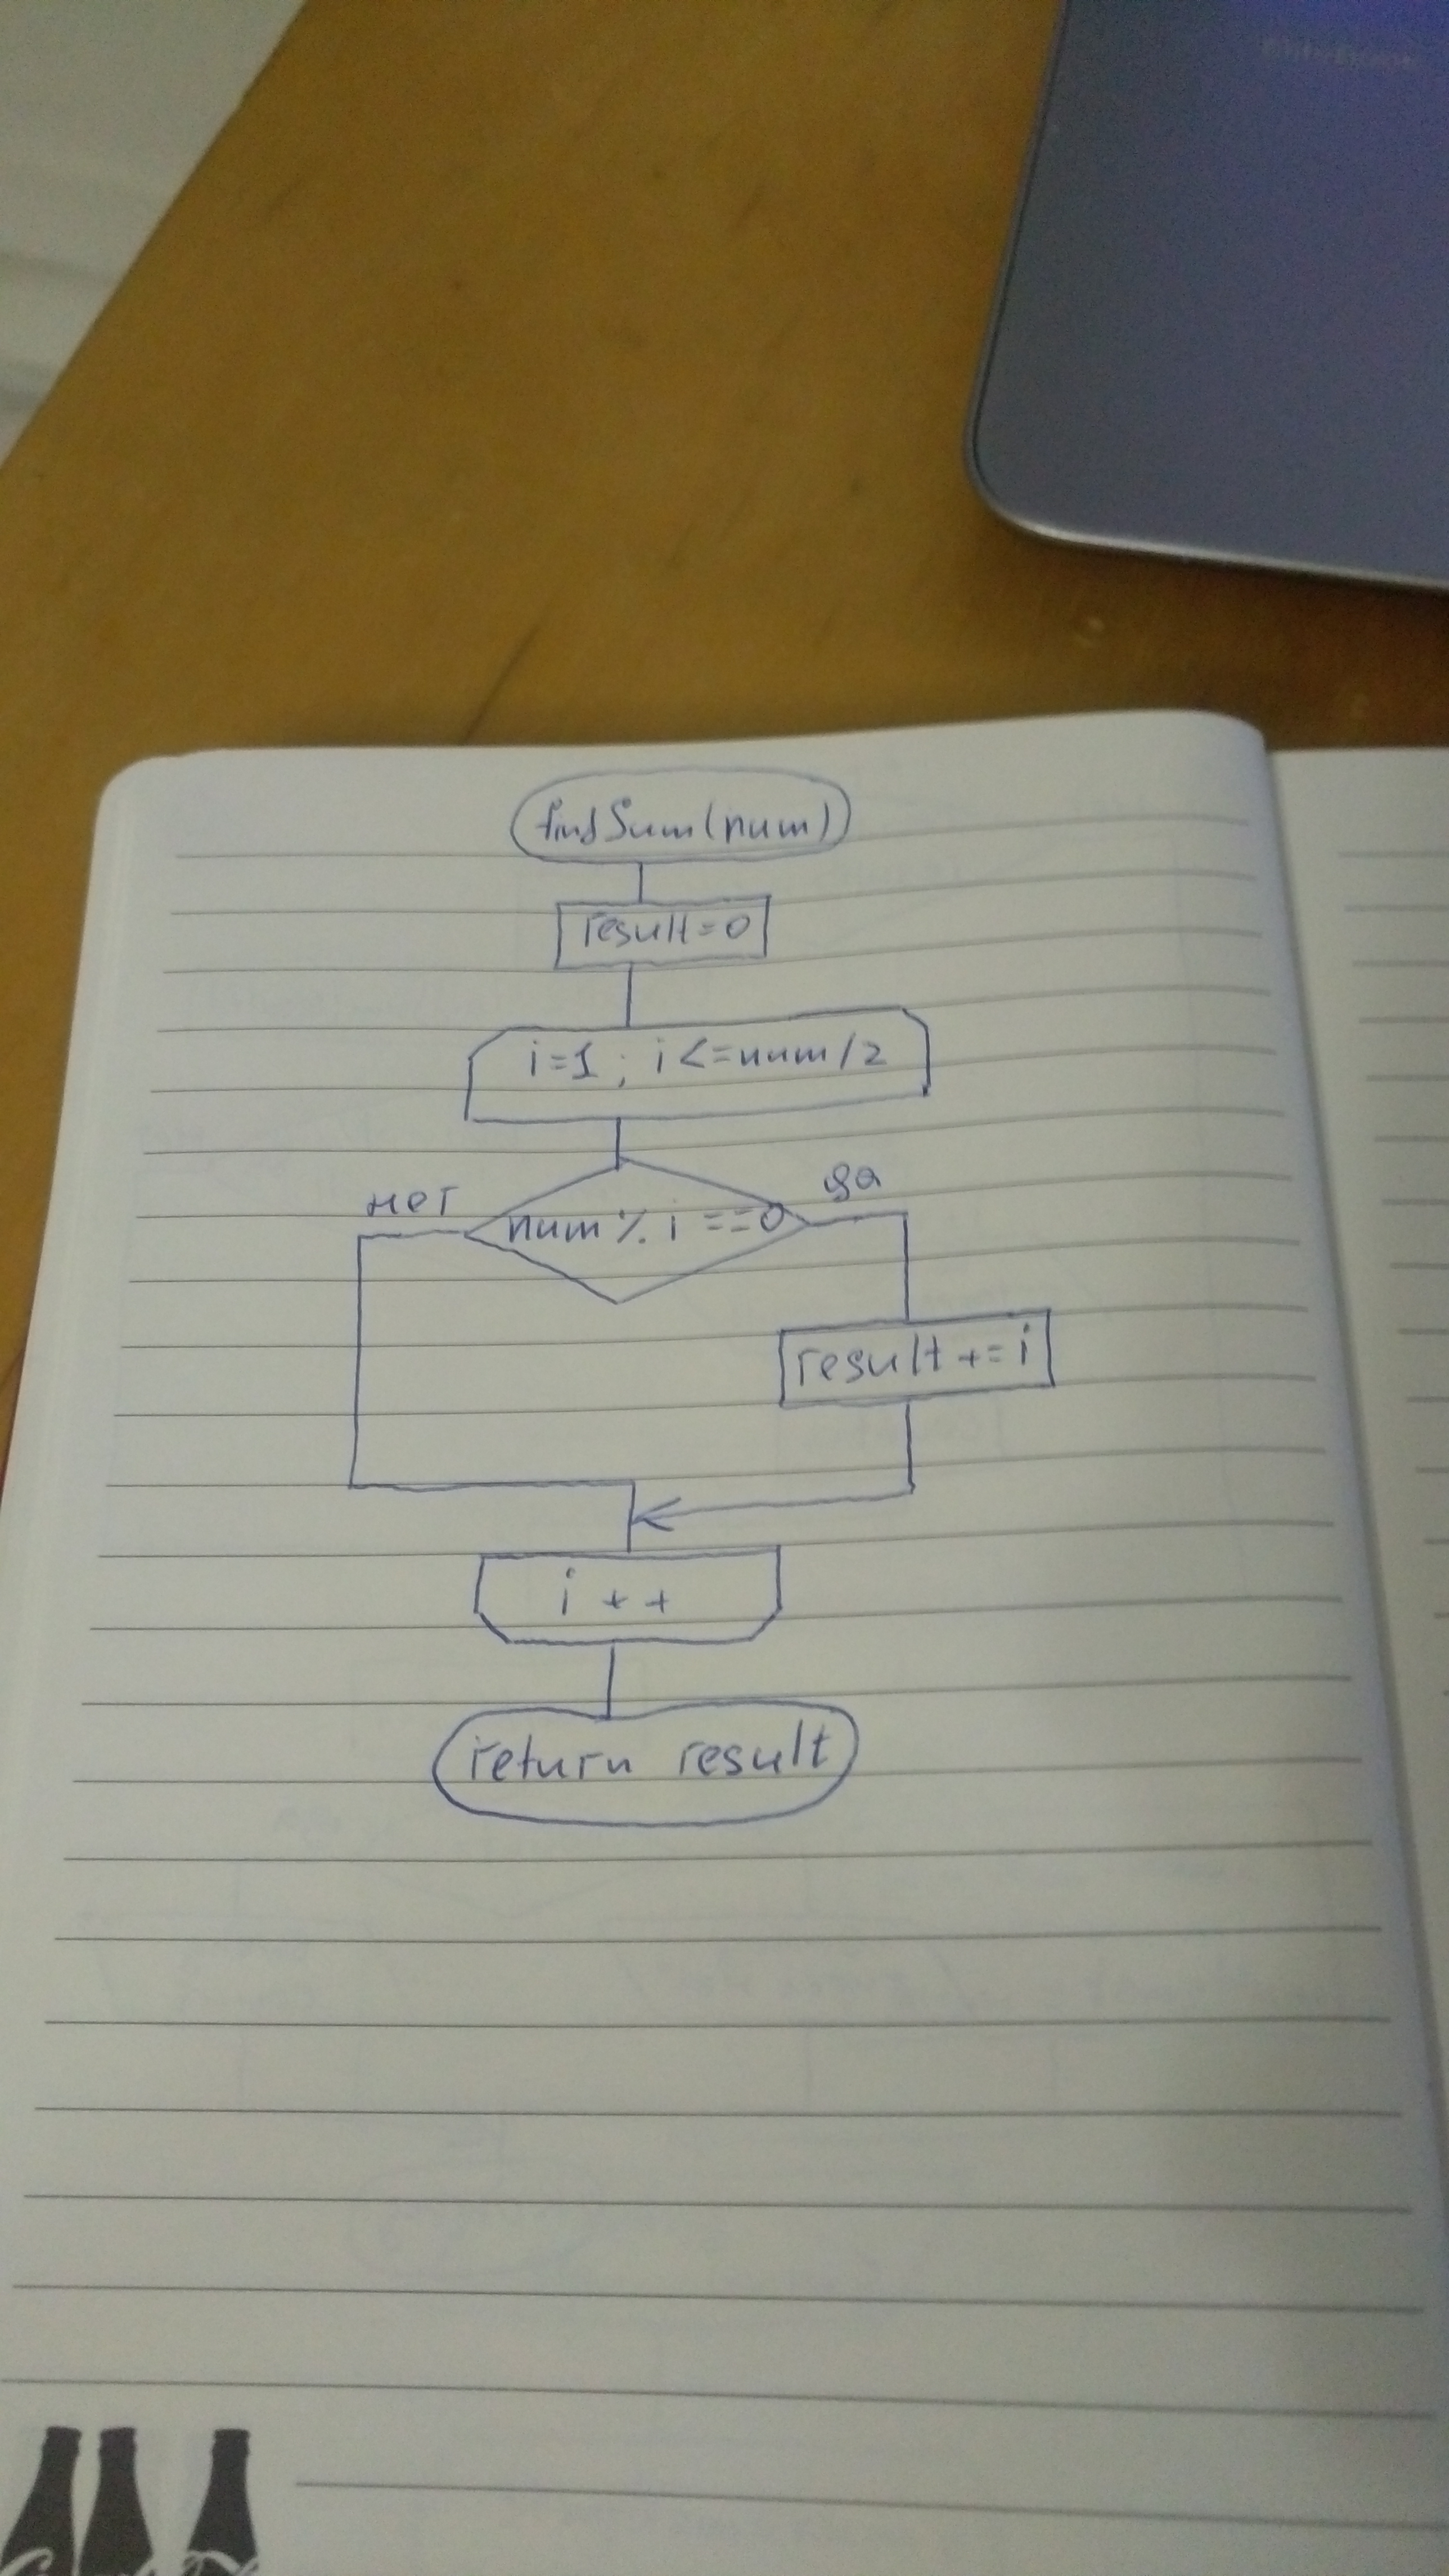 findSum(num)
result=0
i=1; i<=num/2
нет
да
num % i ==0
result += i
i ++
return result